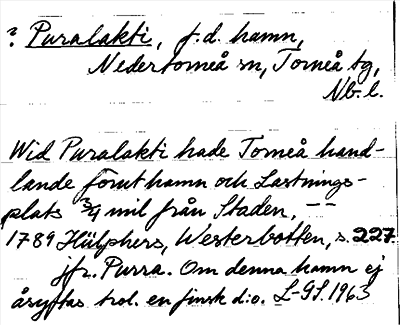 ? Puralakti, f.d. hamn,
Nedertorneå sn, Torneå tg,
Nb. l.
Wid Puralakti hade Torneå hand-
lande förut hamn och Lastnings-
plats 3/4 mil från Staden, – –
1789 Hülphers, Westerbotten, s. 227.
jfr. Purra. Om denna hamn ej
åsyftas trol. en finsk d:o. L-GS. 1963